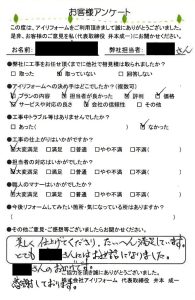 お客様アンケート
この度は、アイリフォームをご利用頂きまして誠にありがとうございました。
是非、お客様のご意見を私(代表取締役 井本成一)にお聞かせください。
お名前: 弊社担当者: さん
●弊社に工事をお任せ頂けるまでに他社で相見積は取られましたか?
□取った □取っていない □回答しない
●アイリフォームへの決め手はどこでしたか?(複数可)
□プランの内容 □担当者が良かった □評判 □価格
□サービスや対応の良さ □会社の信頼性 □その他
●工事中トラブル等はありませんでしたか?
□あった( ) □なかった
●工事の仕上がりはいかがですか?
□大変満足 □満足 □普通 □やや不満 □不満( )
●担当者の対応はいかがでしたか?
□大変満足 □満足 □普通 □やや不満 □不満( )
●職人のマナーはいかがでしたか?
□大変満足 □満足 □普通 □やや不満 □不満( )
●今後リフォームしてみたい箇所・気になっている所はありますか?
( )
●その他ご意見・ご感想等ございましたらお聞かせください。
美しく仕上げてくださり、たいへん満足しています。
とても さんにはお世話になりました。
さんのおかげです。
感謝しております。
アイリフォーム株式会社 代表取締役 井本 成一